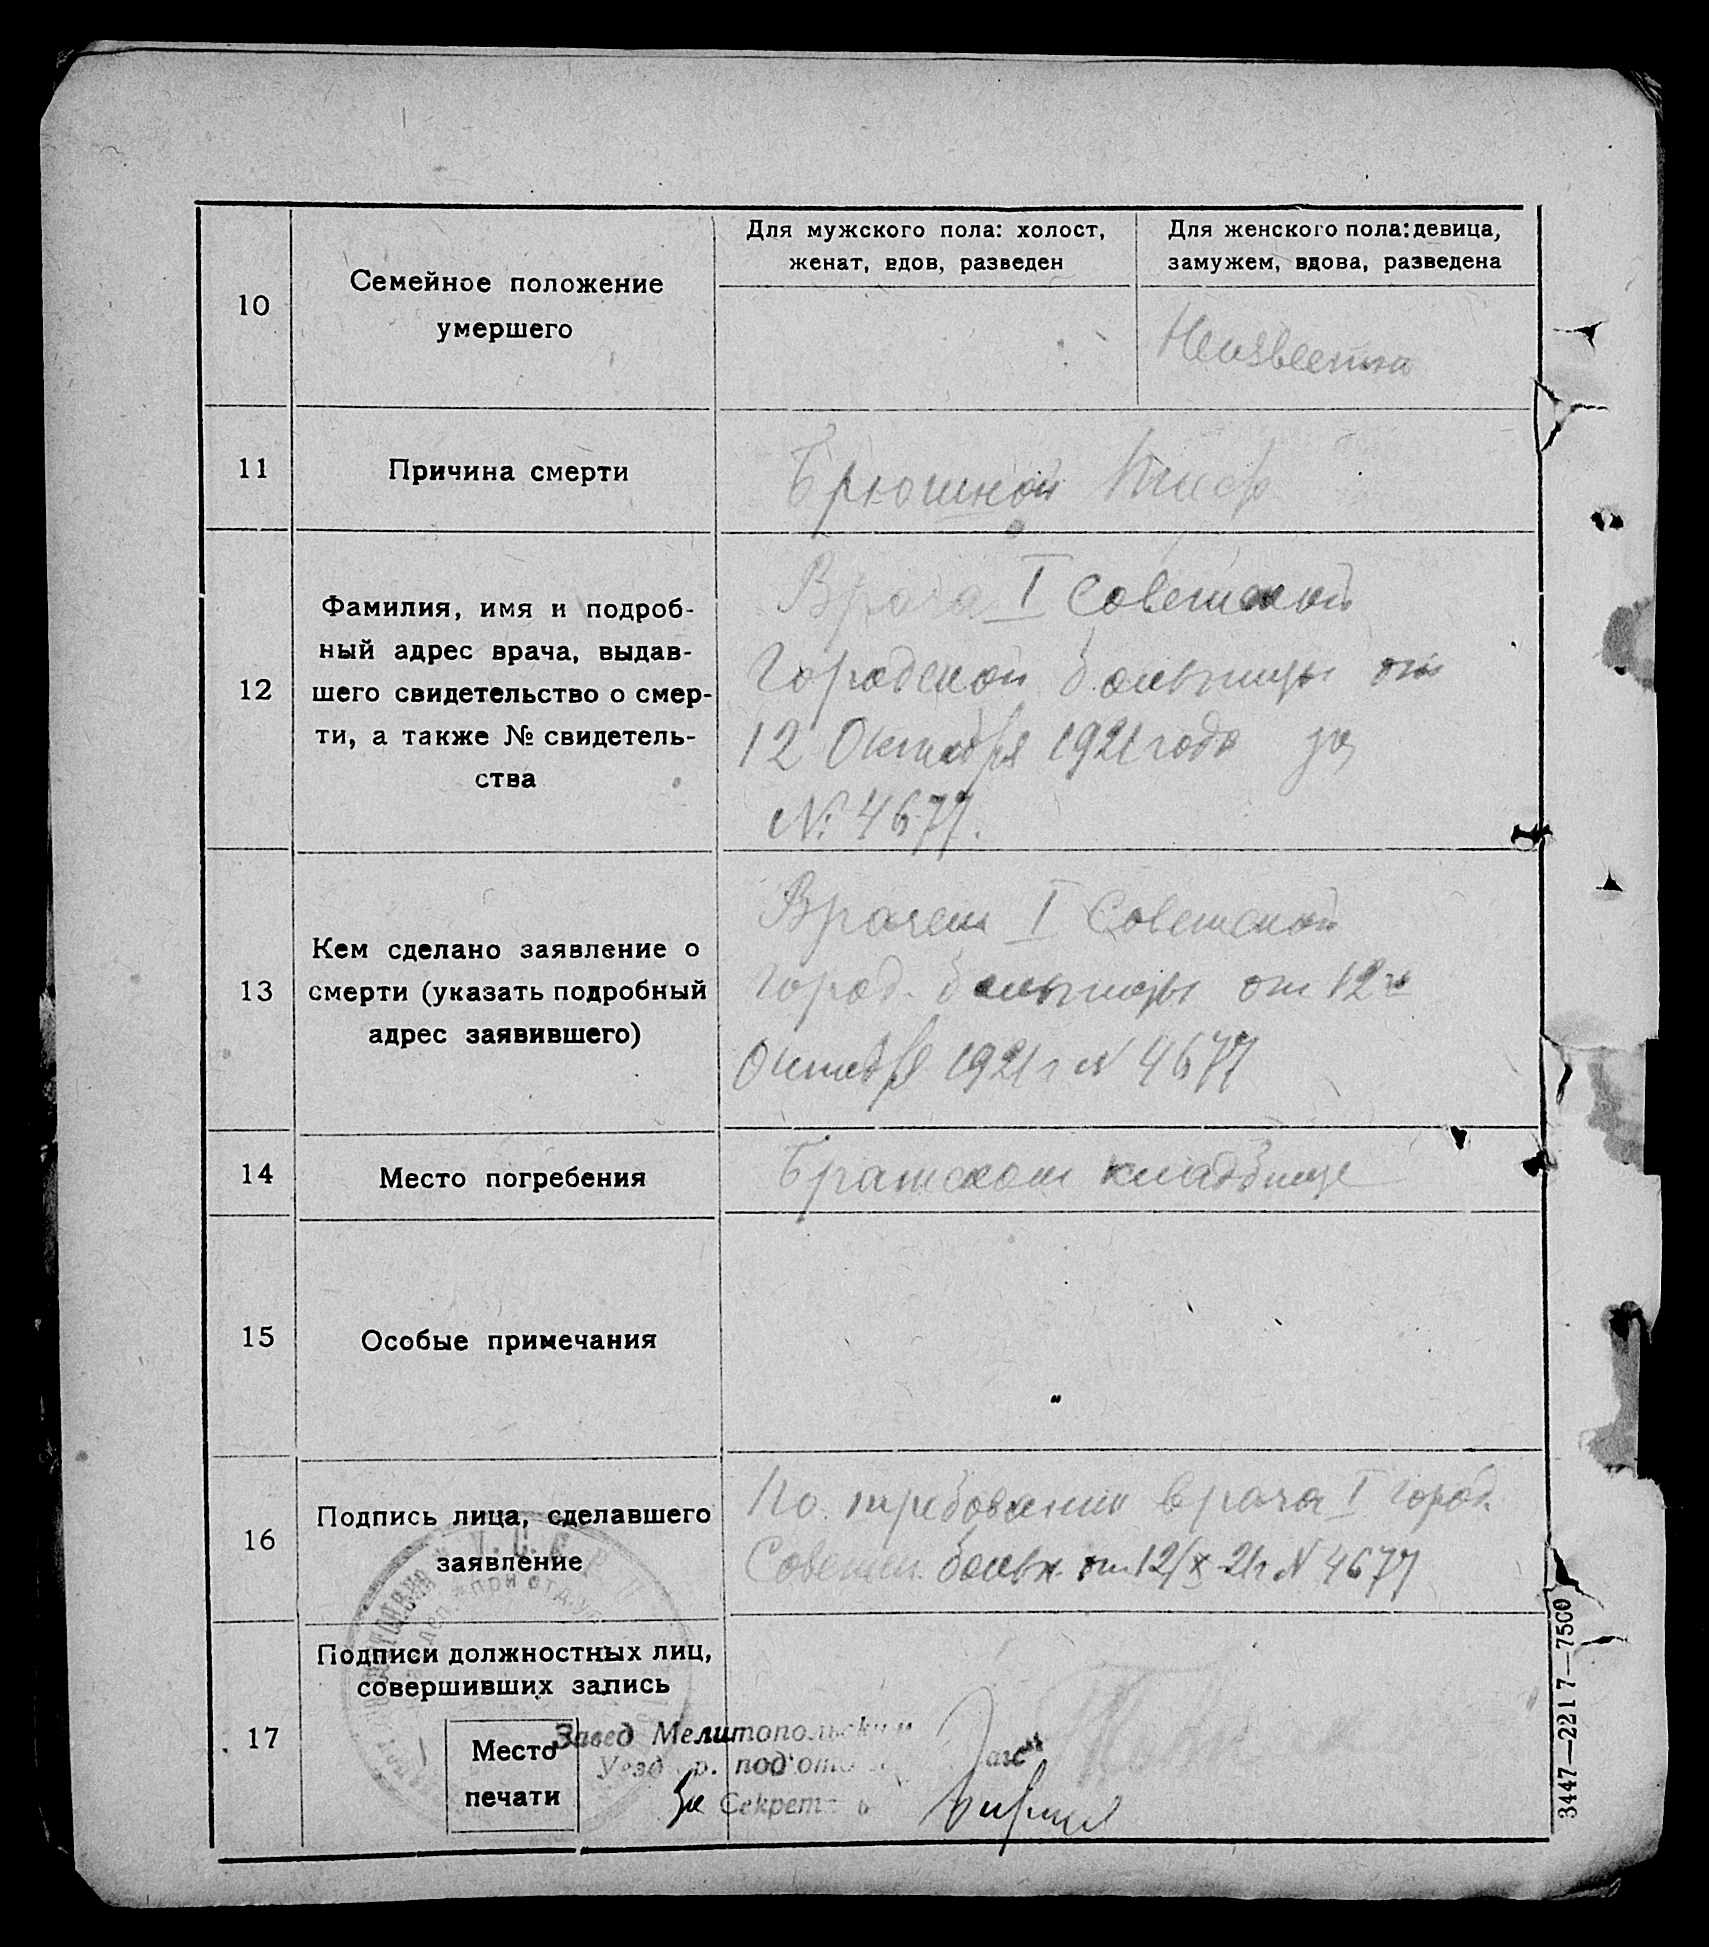 10
Семейное положение
умершего
Для мужского пола: холост,
женат, вдов, разведен
Для женского пола: девица,
замужем, вдова, разведена
Неизвестна
11
Причина смерти
Брюшной тиф
12
Фамилия, имя и подроб-
ный адрес врача, выдав-
шего свидетельство о смер-
ти, а также № свидетель-
ства
Врача I Советской
Городской больницы от
12 Октября 1921 года за
№ 4677.
13
Кем сделано заявление о
смерти (указать подробный
адрес заявившего)
Врачем I Советской
город. больницы от 12го
Октября 1921 г N 4677
14
Место погребения
Братском кладбище
15
Особые примечания
16
Подпись лица, сделавшего
заявление
По требовании врача I город.
Советск. больн. от 12/X 21 г N 4677
17
Подписи должностных лиц,
совершивших запись
Место
печати
Завед Мелитопольским
Уезд под'отд Загс"
За Секрет
У.С.С.Р.
при отд. уп
3447—2217—7500